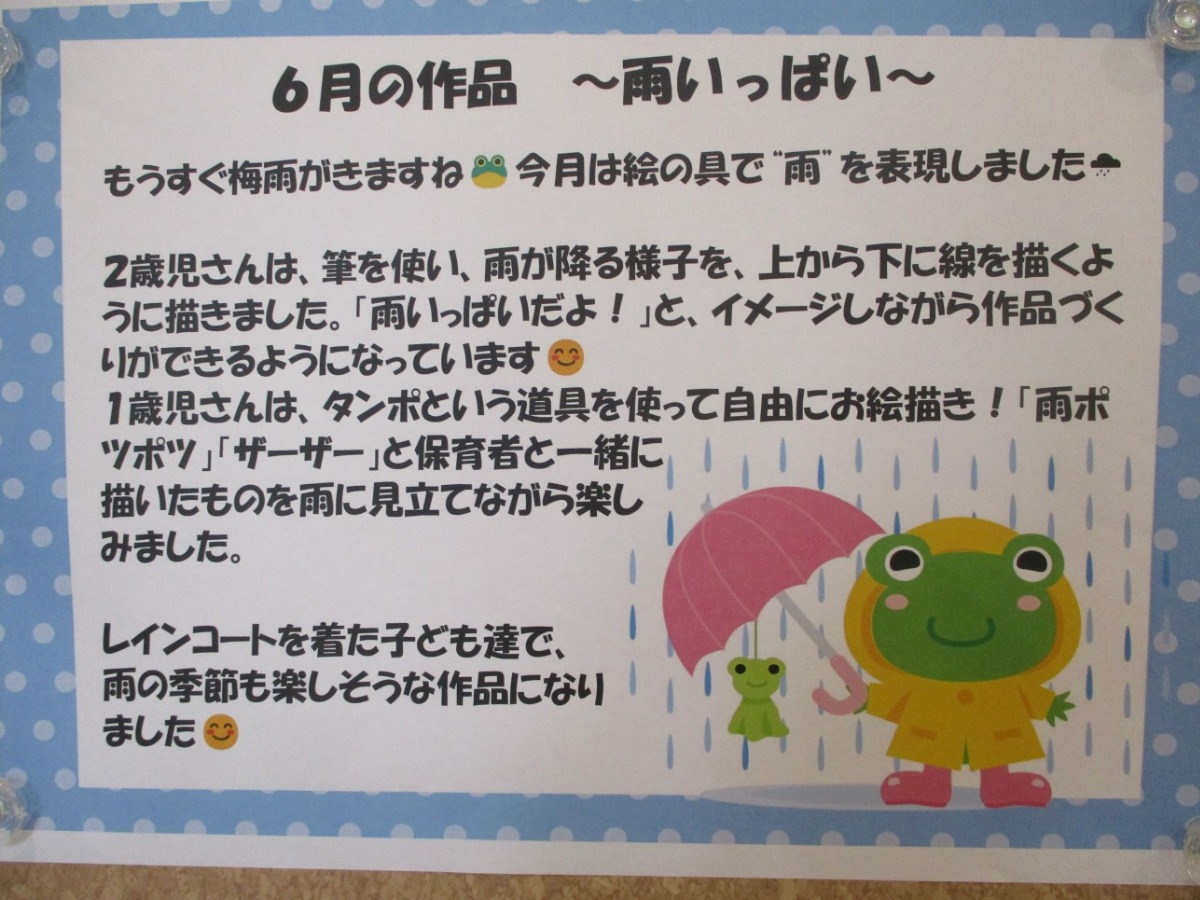 6月の作品　～雨いっぱい～
もうすぐ梅雨がきますね🐸今月は絵の具で“雨”を表現しました🌧
2歳児さんは、筆を使い、雨が降る様子を、上から下に線を描くよ
うに描きました。「雨いっぱいだよ！」と、イメージしながら作品づく
りができるようになっています😊
1歳児さんは、タンポという道具を使って自由にお絵描き！「雨ポ
ツポツ」「ザーザー」と保育者と一緒に
描いたものを雨に見立てながら楽し
みました。
レインコートを着た子ども達で、
雨の季節も楽しそうな作品になり
ました😊